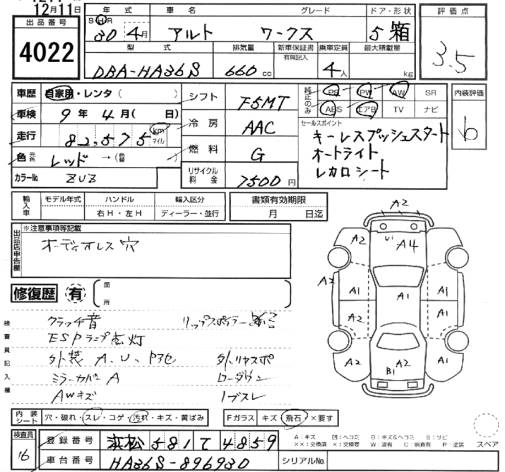 12月11日
出品番号
4022
年式 車名 グレード ドア・形状 評価点
30 4月 アルト ワークス 5 箱 3.5
型式 排気量 新車保証書 有無記入 乗車定員 最大積載量
DBA-HA36S 660cc 4人 kg
車歴 自家用・レンタ( ) シフト F5MT 純正のみ PS PW AW SR 内装評価
ABS エアB TV ナビ b
車検 9年4月( 日) 冷房 AAC
セールスポイント
キーレスプッシュスタート
オートライト
レカロシート
走行 82,575 km マイル
燃料 G
色 レッド →( )
リサイクル料金 7500円
カラーNo ZUZ
輸入車 モデル年式 ハンドル 右H・左H 輸入区分 ディーラー・並行
書類有効期限 月 日迄
出品店申告欄
※注意事項等記載
オーディオレス 穴
修復歴 有 箇所
検査員記入欄
クラッチ音 リップスポイラー
ESPランプ点灯
外装 A、U、
外リヤスポ
ミラーカバーA ローダウン
AWキズ
A2 A2 U1 A4 A2
A2 A1 A1 A1
A2 A2 B1 A2
スペア
内装シート 穴・破れ・スレ・コゲ・汚れ・キズ・黄ばみ Fガラス キズ・飛石・×要す
検査員 16
登録番号 浜松 581 て 4859
車台番号 HA36S-896930 シリアルNo.